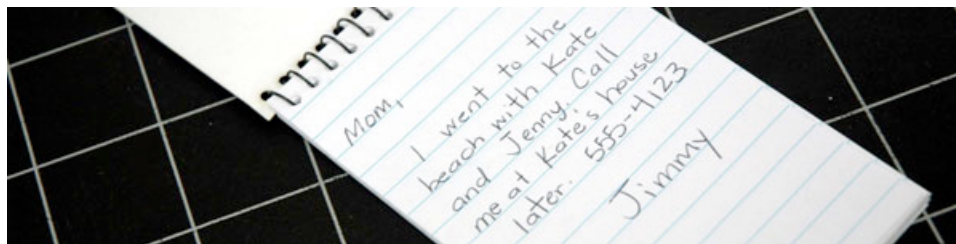 Mom,
I went to the
beach with Kate
and Jenny. Call
me at Kate's house
later. 555-4123
Jimmy